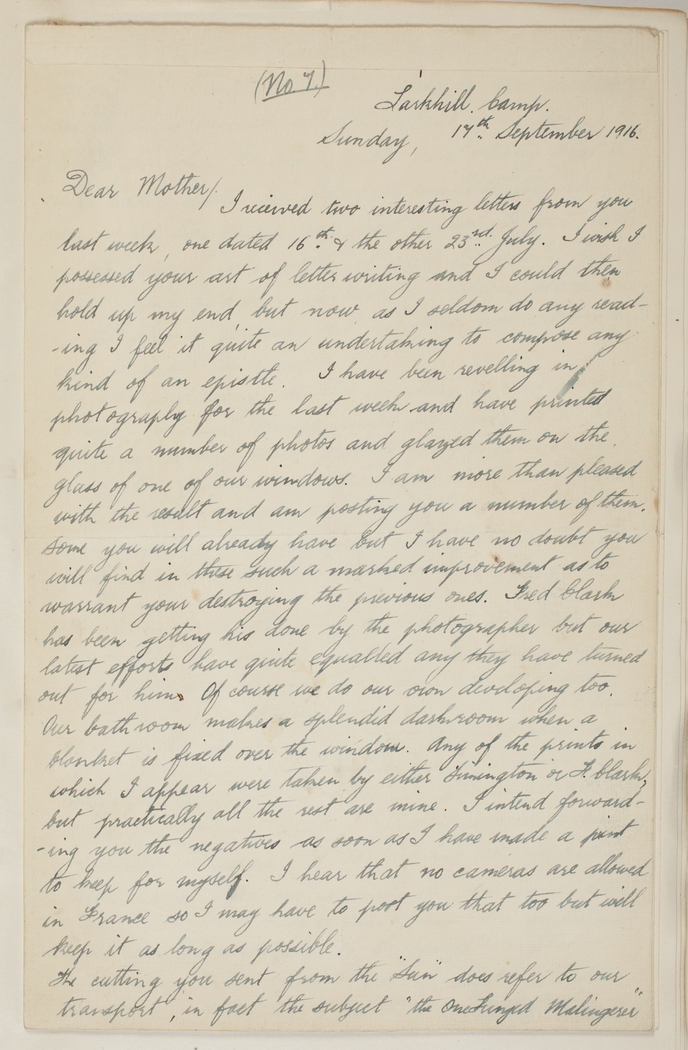 (No 7.)
Larkhill. Camp.
Sunday, 17th. September 1916.
Dear Mother/
I received two interesting letters from you
last week, one dated 16th. & the other 23rd. July. I wish I
possessed your art of letter writing and I could then
hold up my end but now as I seldom do any read-
-ing I feel it quite an undertaking to compose any
kind of an epistle. I have been revelling in
photography for the last week and have printed
quite a number of photos and glazed them on the
glass of one of our windows. I am more than pleased
with the result and am posting you a number of them.
Some you will already have but I have no doubt you
will find in these such a marked improvement as to
warrant your destroying the previous ones. Fred Clark
has been getting his done by the photographer but our
latest efforts have quite equalled any they have turned
out for him. Of course we do our own developing too.
Our bath room makes a splendid darkroom when a
blanket is fixed over the window. Any of the prints in
which I appear were taken by either Simington or F. Clark,
but practically all the rest are mine. I intend forward-
-ing you the negatives as soon as I have made a print
to keep for myself. I hear that no cameras are allowed
in France so I may have to post you that too but will
keep it as long as possible.
The cutting you sent from the "Sun" does refer to our
transport, in fact the subject "the One Lunged Malingerer"